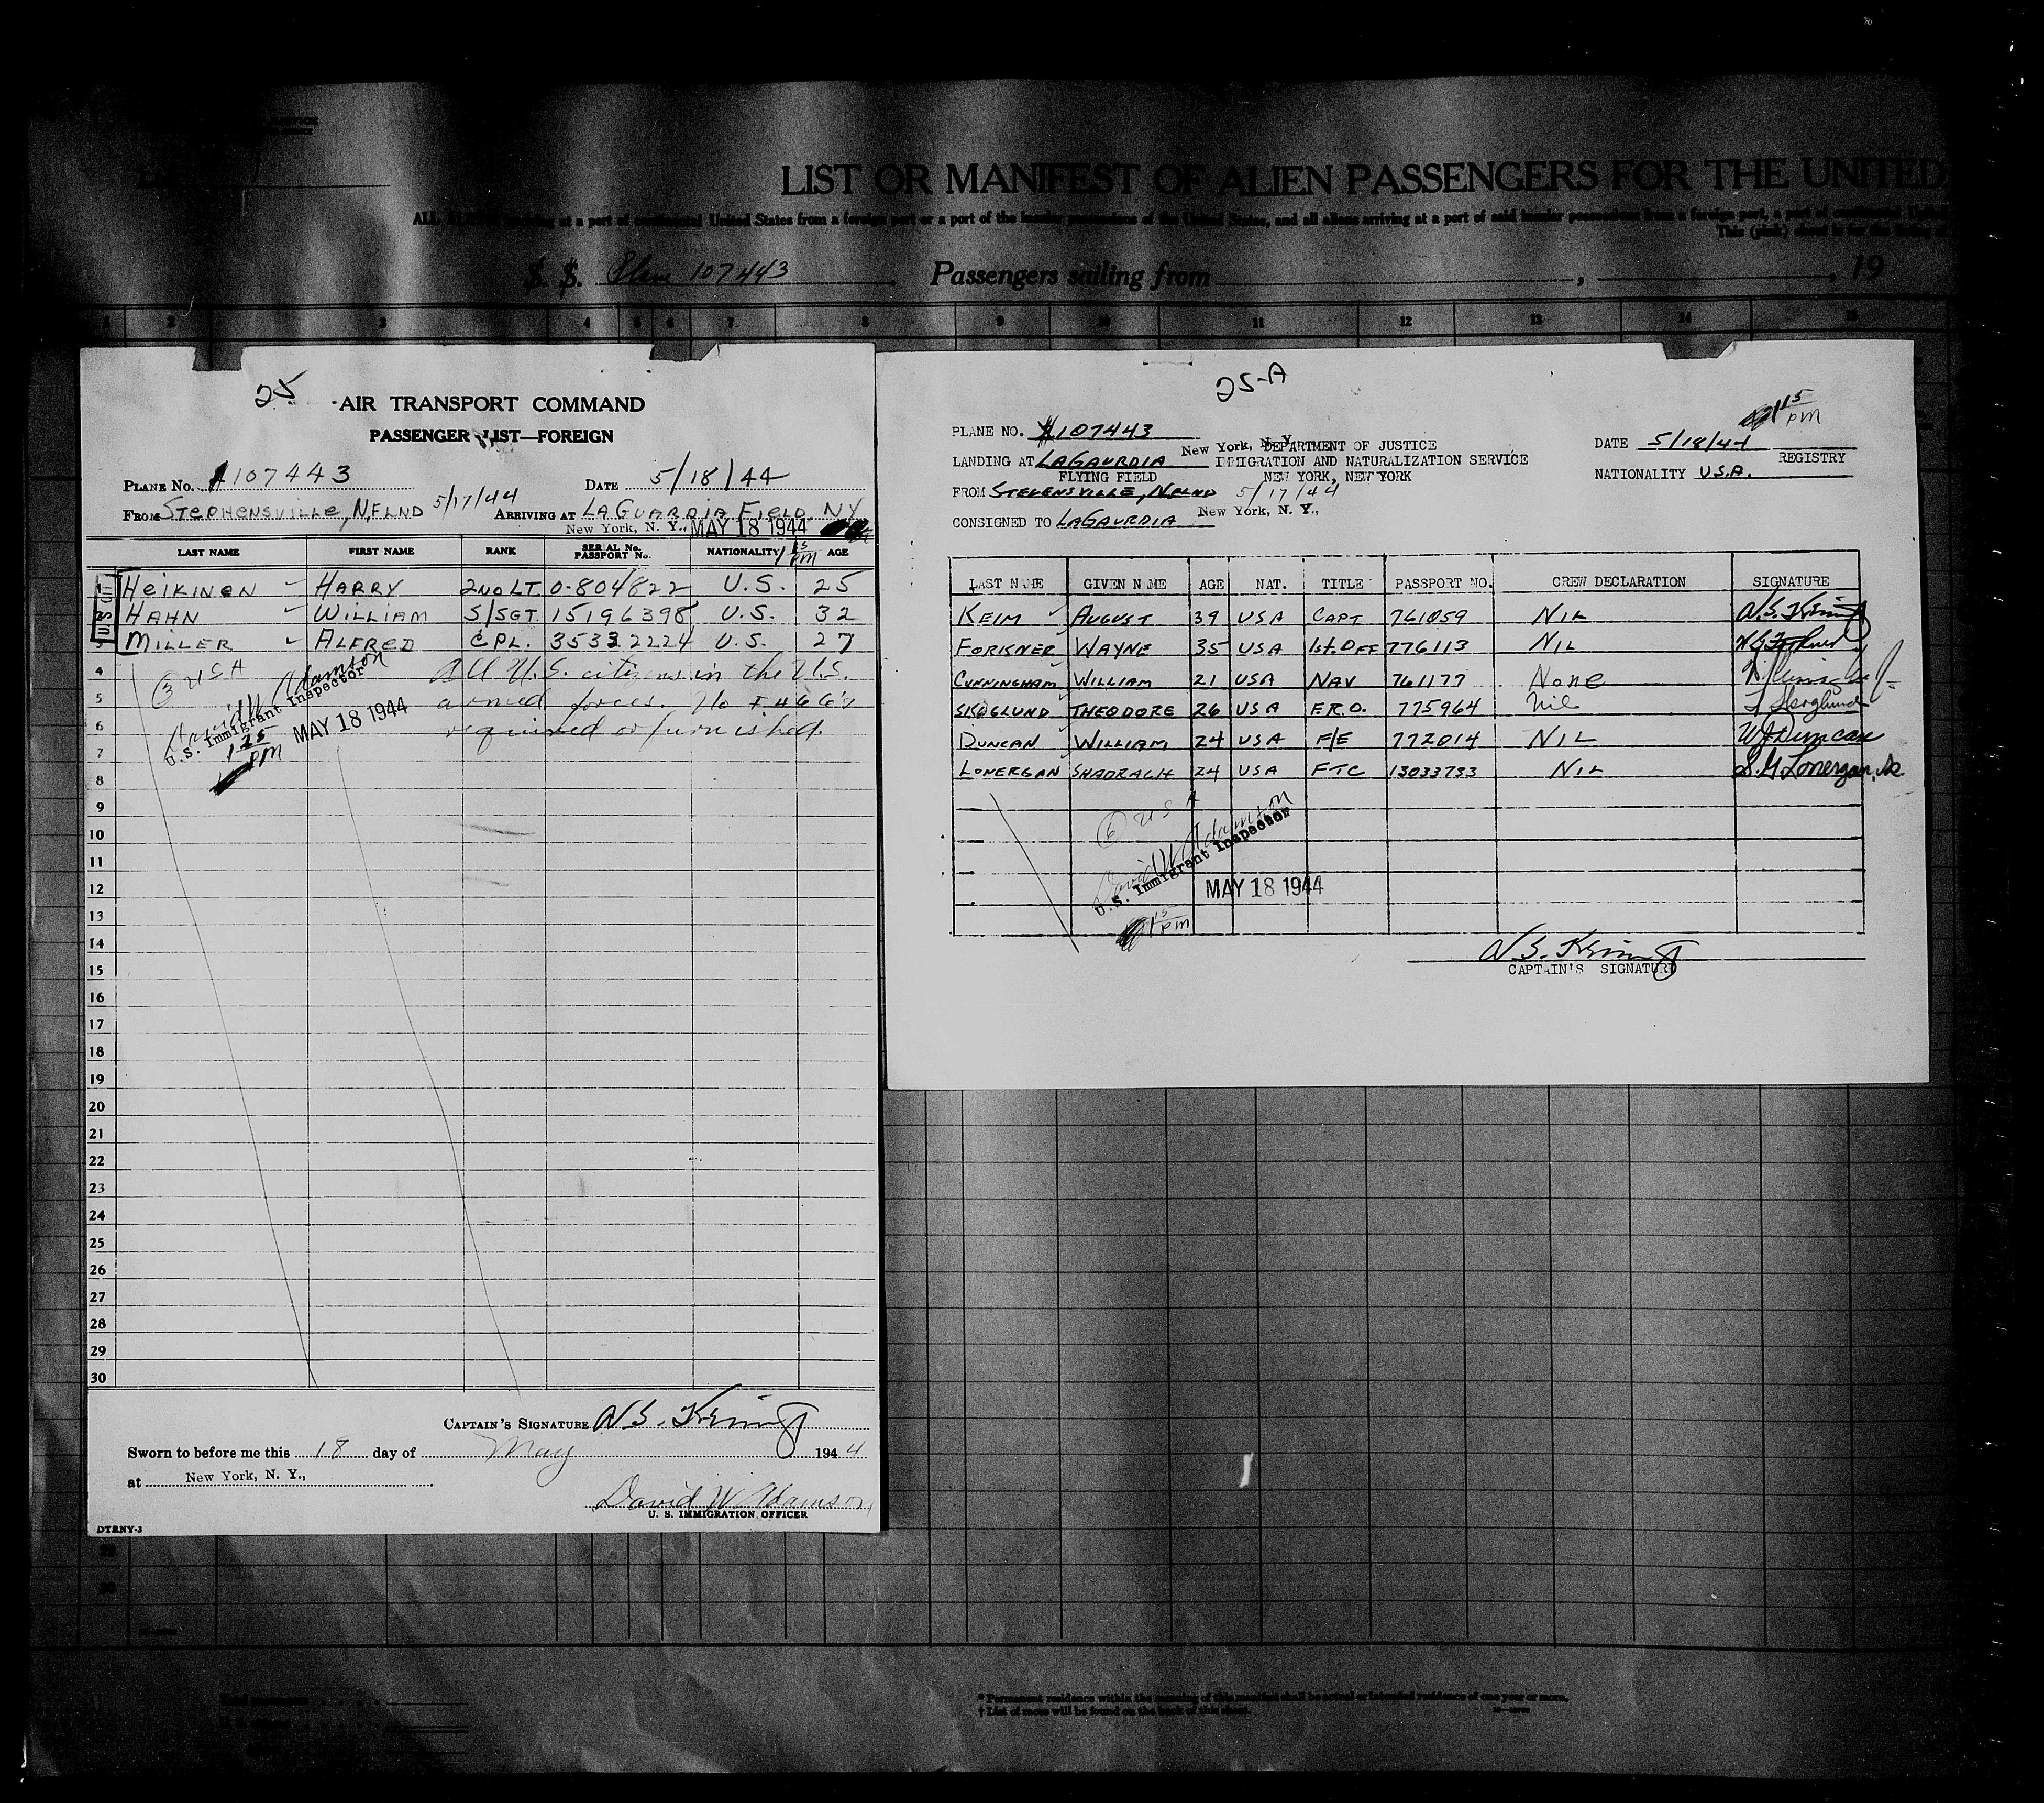 LIST OR MANIFEST OF ALIEN PASSENGERS FOR THE UNITED
ALL ALIENS arriving at a port of continental United States from a foreign port or a port of the insular possessions of the United States, and all aliens arriving at a port of said insular possessions from a foreign port, a port of continental United
This (pink) sheet is for the listing of
S. S. Plane 107443 Passengers sailing from , , 19
1 2 3 4 5 6 7 8 9 10 11 12 13 14 15
25
AIR TRANSPORT COMMAND
PASSENGER LIST—FOREIGN
PLANE No. 107443 DATE 5/18/44
FROM STEPHENSVILLE, N,FLND 5/17/44 ARRIVING AT LAGUARDIA FIELD, NY
New York, N. Y., MAY 18 1944
LAST NAME FIRST NAME RANK SERIAL No. PASSPORT No. NATIONALITY 1 15 PM AGE
HEIKINEN HARRY 2ND LT O-804822 U.S. 25
HAHN WILLIAM S/SGT. 15196398 U.S. 32
MILLER ALFRED CPL. 35332224 U.S. 27
4 3 USA All U.S. citizens in the U.S.
5 armed forces. No I 466's
6 required or furnished.
David W Adamson
U.S. Immigrant Inspector
MAY 18 1944
1 25 PM
7
8
9
10
11
12
13
14
15
16
17
18
19
20
21
22
23
24
25
26
27
28
29
30
CAPTAIN'S SIGNATURE
Sworn to before me this 18 day of May 1944
at New York, N. Y.,
David W. Adamson
U. S. IMMIGRATION OFFICER
DTRNY-3
25-A
1 15 pm
PLANE NO. 107443
New York, N. Y. DEPARTMENT OF JUSTICE
DATE 5/18/44
LANDING AT LAGAURDIA IMMIGRATION AND NATURALIZATION SERVICE
REGISTRY
FLYING FIELD NEW YORK, NEW YORK
NATIONALITY U.S.A.
FROM STEVENSVILLE, NFLND 5/17/44
New York, N. Y.,
CONSIGNED TO LAGAURDIA
LAST NAME GIVEN NAME AGE NAT. TITLE PASSPORT NO. CREW DECLARATION SIGNATURE
KEIM AUGUST 39 USA CAPT 761059 NIL
FORKNER WAYNE 35 USA 1st. OFF 776113 NIL
CUNNINGHAM WILLIAM 21 USA NAV 761177 None
SKOGLUND THEODORE 26 USA F.R.O. 775964 Nil T Skoglund
DUNCAN WILLIAM 24 USA F/E 772014 NIL WJ Duncan
LONERGAN SHADRACH 24 USA FTC 13033733 NIL S. G Lonergan, Jr.
6 USA
David W Adamson
U.S. Immigrant Inspector
MAY 18 1944
1 15 pm
CAPTAIN'S SIGNATURE
29
30
* Permanent residence within the meaning of this manifest shall be actual or intended residence of one year or more.
† List of races will be found on the back of this sheet.